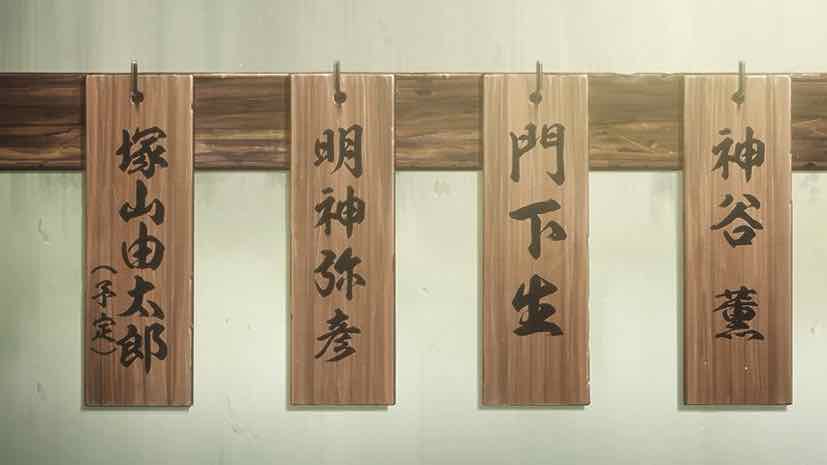 神谷 薫
門下生
明神弥彦
塚山由太郎
(予定)